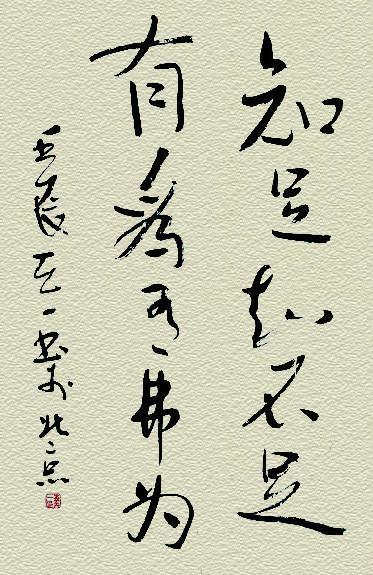 知足知不足
有為有弗为
壬辰一书于北京